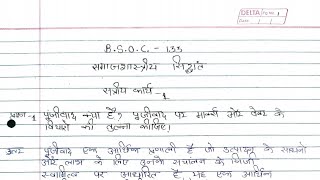 DELTA Pg No. 1
Date / /
B.S.O.C. - 133
समाजशास्त्रीय सिद्धांत
सत्रीय कार्य - 1
प्रश्न-1 पूंजीवाद क्या है? पूंजीवाद पर मार्क्स और वेबर के
विचारों की तुलना कीजिए।
उत्तर पूंजीवाद एक आर्थिक प्रणाली है जो उत्पादन के साधनों
और लाभ के लिए उनके संचालन के निजी
स्वामित्व पर आधारित है, यह एक आर्थिक